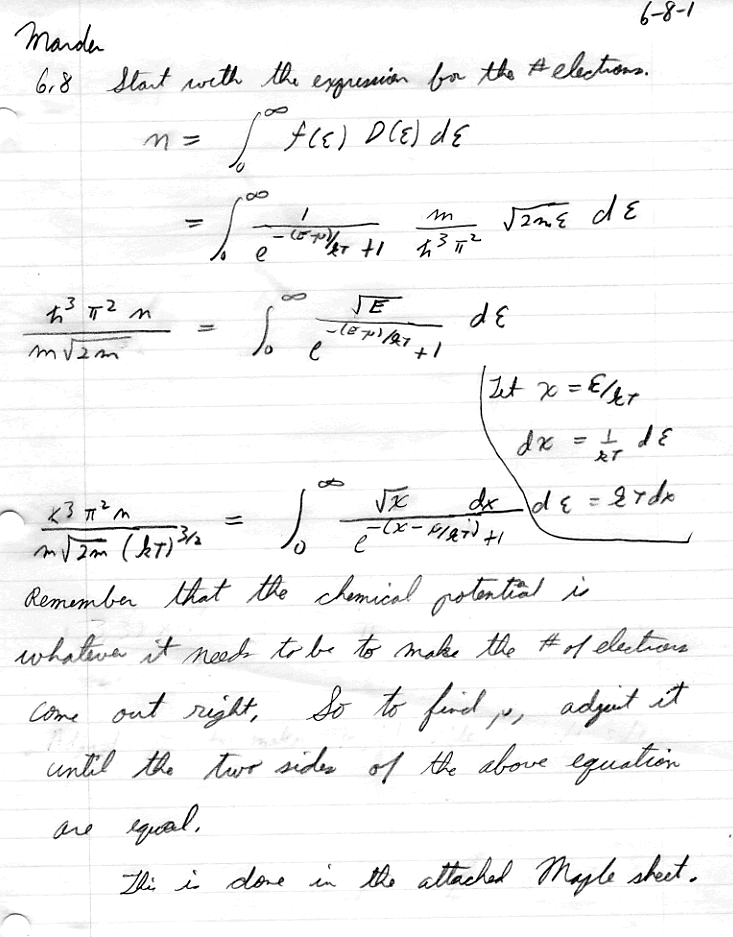 6-8-1
Marder
6.8 Start with the expression for the # electrons.
n = ∫₀^∞ f(ε) D(ε) dε
= ∫₀^∞ 1/(e^(-(ε-μ)/kT) + 1) m/(ħ³π²) √(2mε) dε
ħ³π²n/(m√(2m)) = ∫₀^∞ √E/(e^(-(ε-μ)/kT) + 1) dε
Let x = ε/kT
dx = 1/kT dε
dε = kT dx
ħ³π²n/(m√(2m) (kT)^(3/2)) = ∫₀^∞ √x dx/(e^(-(x-μ/kT)) + 1)
Remember that the chemical potential is
whatever it needs to be to make the # of electrons
come out right. So to find μ, adjust it
until the two sides of the above equation
are equal.
This is done in the attached Maple sheet.